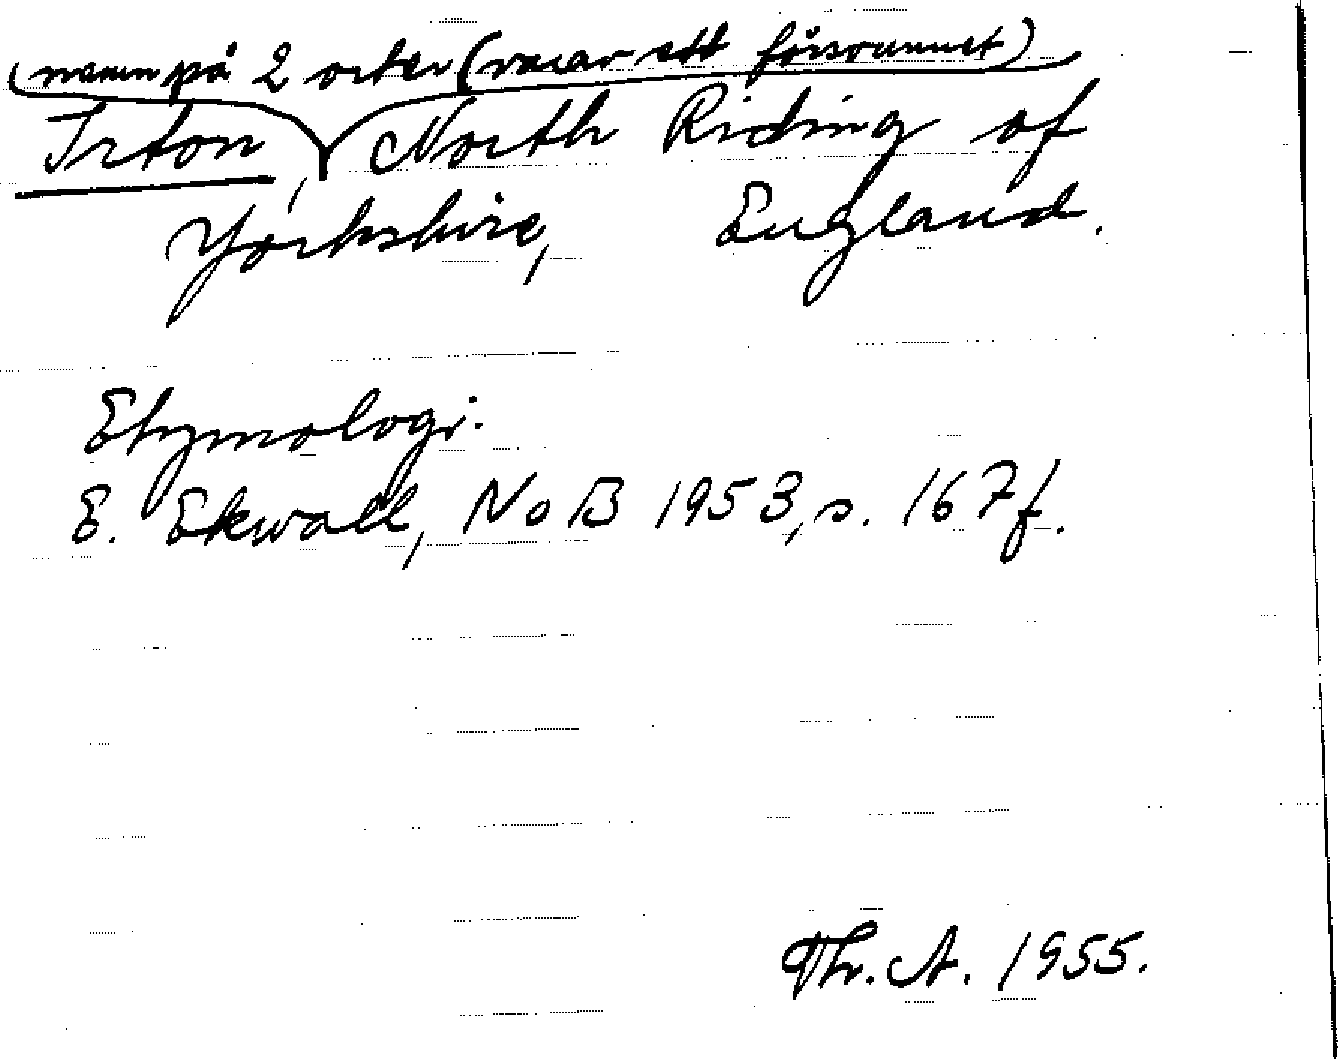 namn på 2 orter (varav ett försvunnet)
Irton, North Riding of
Yorkshire, England.
Etymologi.
E. Ekwall, NoB 1953, s. 167f.
Th. A. 1955.